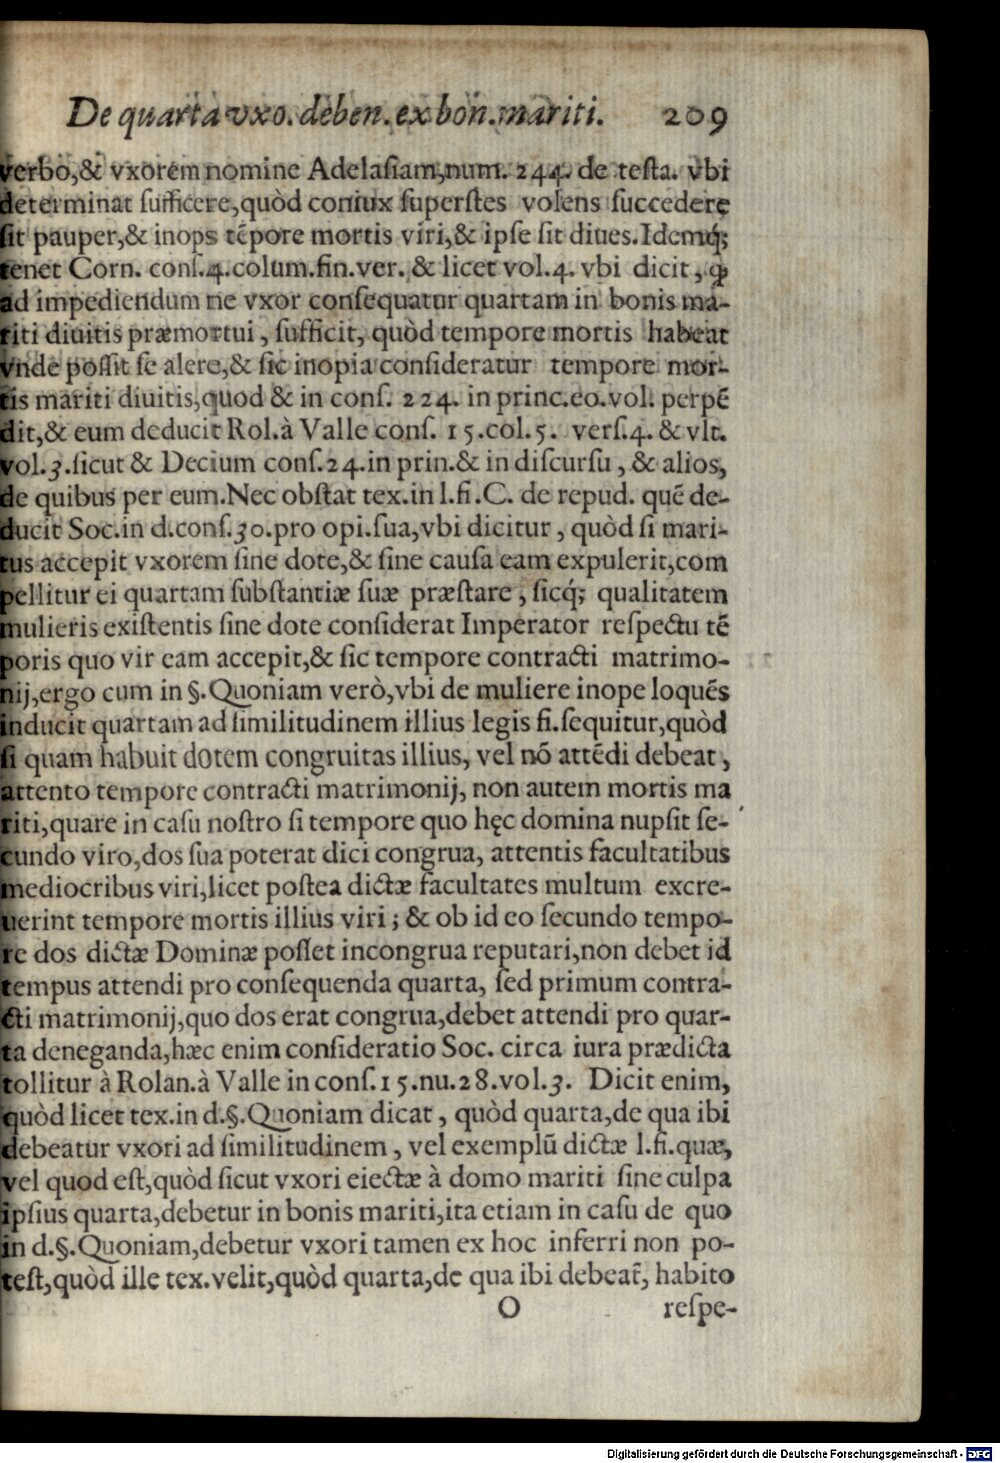 De quarta vxo. deben. ex bon. mariti. 209
verbo,& vxorem nomine Adelasiam,num. 244. de testa. vbi
determinat sufficere,quòd coniux superstes volens succedere
sit pauper,& inops tẽpore mortis viri,& ipse sit diues.Idemq́;
tenet Corn. conſ.4.colum.fin.ver. & licet vol.4. vbi dicit, ꝙ
ad impediendum ne vxor conſequatur quartam in bonis ma-
riti diuitis præmortui, ſufficit, quòd tempore mortis habeat
vnde poſſit ſe alere,& ſic inopia conſideratur tempore mor-
tis mariti diuitis,quod & in conſ. 224. in princ.eo.vol. perpẽ
dit,& eum deducit Rol.à Valle conſ. 15.col.5. verſ.4. & vlt.
vol.3.ſicut & Decium conſ.24.in prin.& in diſcurſu, & alios,
de quibus per eum.Nec obſtat tex.in l.fi.C. de repud. quẽ de-
ducit Soc.in d.conſ.30.pro opi.ſua,vbi dicitur, quòd ſi mari-
tus accepit vxorem ſine dote,& ſine cauſa eam expulerit,com
pellitur ei quartam ſubſtantiæ ſuæ præſtare, ſicq́; qualitatem
mulieris exiſtentis ſine dote conſiderat Imperator reſpectu tẽ
poris quo vir eam accepit,& ſic tempore contracti matrimo-
nij,ergo cum in §.Quoniam verò,vbi de muliere inope loquẽs
inducit quartam ad ſimilitudinem illius legis fi.ſequitur,quòd
ſi quam habuit dotem congruitas illius, vel nõ attẽdi debeat,
attento tempore contracti matrimonij, non autem mortis ma
riti,quare in caſu noſtro ſi tempore quo hęc domina nupſit ſe-
cundo viro,dos ſua poterat dici congrua, attentis facultatibus
mediocribus viri,licet poſtea dictæ facultates multum excre-
uerint tempore mortis illius viri; & ob id eo ſecundo tempo-
re dos dictæ Dominæ poſſet incongrua reputari,non debet id
tempus attendi pro conſequenda quarta, ſed primum contra-
cti matrimonij,quo dos erat congrua,debet attendi pro quar-
ta deneganda,hæc enim conſideratio Soc. circa iura prædicta
tollitur à Rolan.à Valle in conſ.15.nu.28.vol.3. Dicit enim,
quòd licet tex.in d.§.Quoniam dicat, quòd quarta,de qua ibi
debeatur vxori ad ſimilitudinem, vel exemplũ dictæ l.fi.quæ,
vel quod eſt,quòd ſicut vxori eiectæ à domo mariti ſine culpa
ipſius quarta,debetur in bonis mariti,ita etiam in caſu de quo
in d.§.Quoniam,debetur vxori tamen ex hoc inferri non po-
teſt,quòd ille tex.velit,quòd quarta,de qua ibi debeat̃, habito
O reſpe-
Digitalisierung gefördert durch die Deutsche Forschungsgemeinschaft - DFG